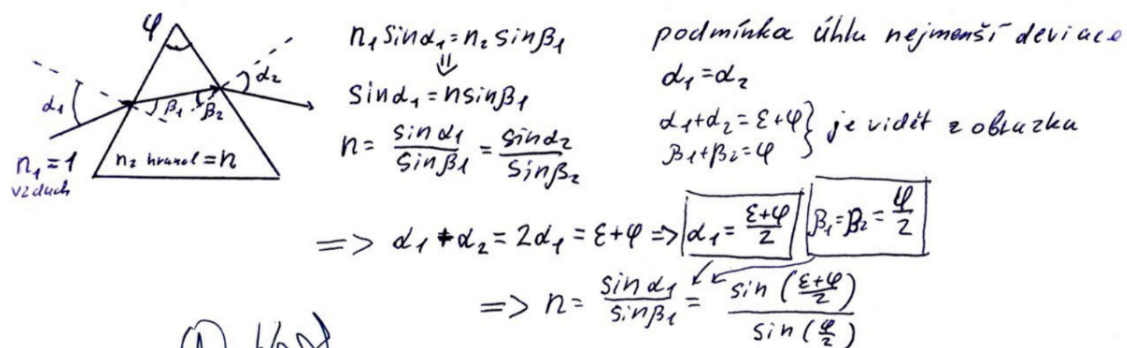 φ
α₁
β₁ β₂
α₂
n₁ = 1
vzduch
n₂ hranol = n
n₁ sinα₁ = n₂ sinβ₁
⇓
sinα₁ = n sinβ₁
n = sinα₁ / sinβ₁ = sinα₂ / sinβ₂
podmínka úhlu nejmenší deviace
α₁ = α₂
α₁ + α₂ = ε + φ } je vidět z obrazka
β₁ + β₂ = φ
=> α₁ + α₂ = 2α₁ = ε + φ => α₁ = (ε + φ) / 2 β₁ = β₂ = φ / 2
=> n = sinα₁ / sinβ₁ = sin((ε + φ) / 2) / sin(φ / 2)